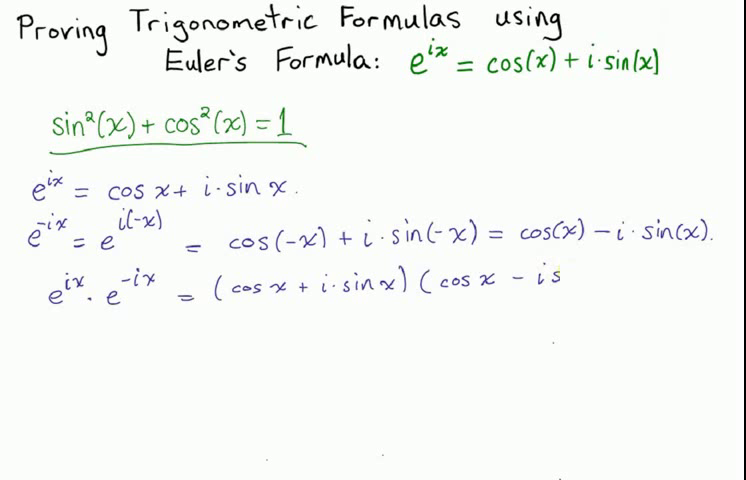 Proving Trigonometric Formulas using
Euler's Formula: e^{ix} = cos(x) + i·sin(x)
sin²(x) + cos²(x) = 1
e^{ix} = cos x + i·sin x.
e^{-ix} = e^{i(-x)} = cos(-x) + i·sin(-x) = cos(x) - i·sin(x).
e^{ix}·e^{-ix} = (cos x + i·sin x)(cos x - is